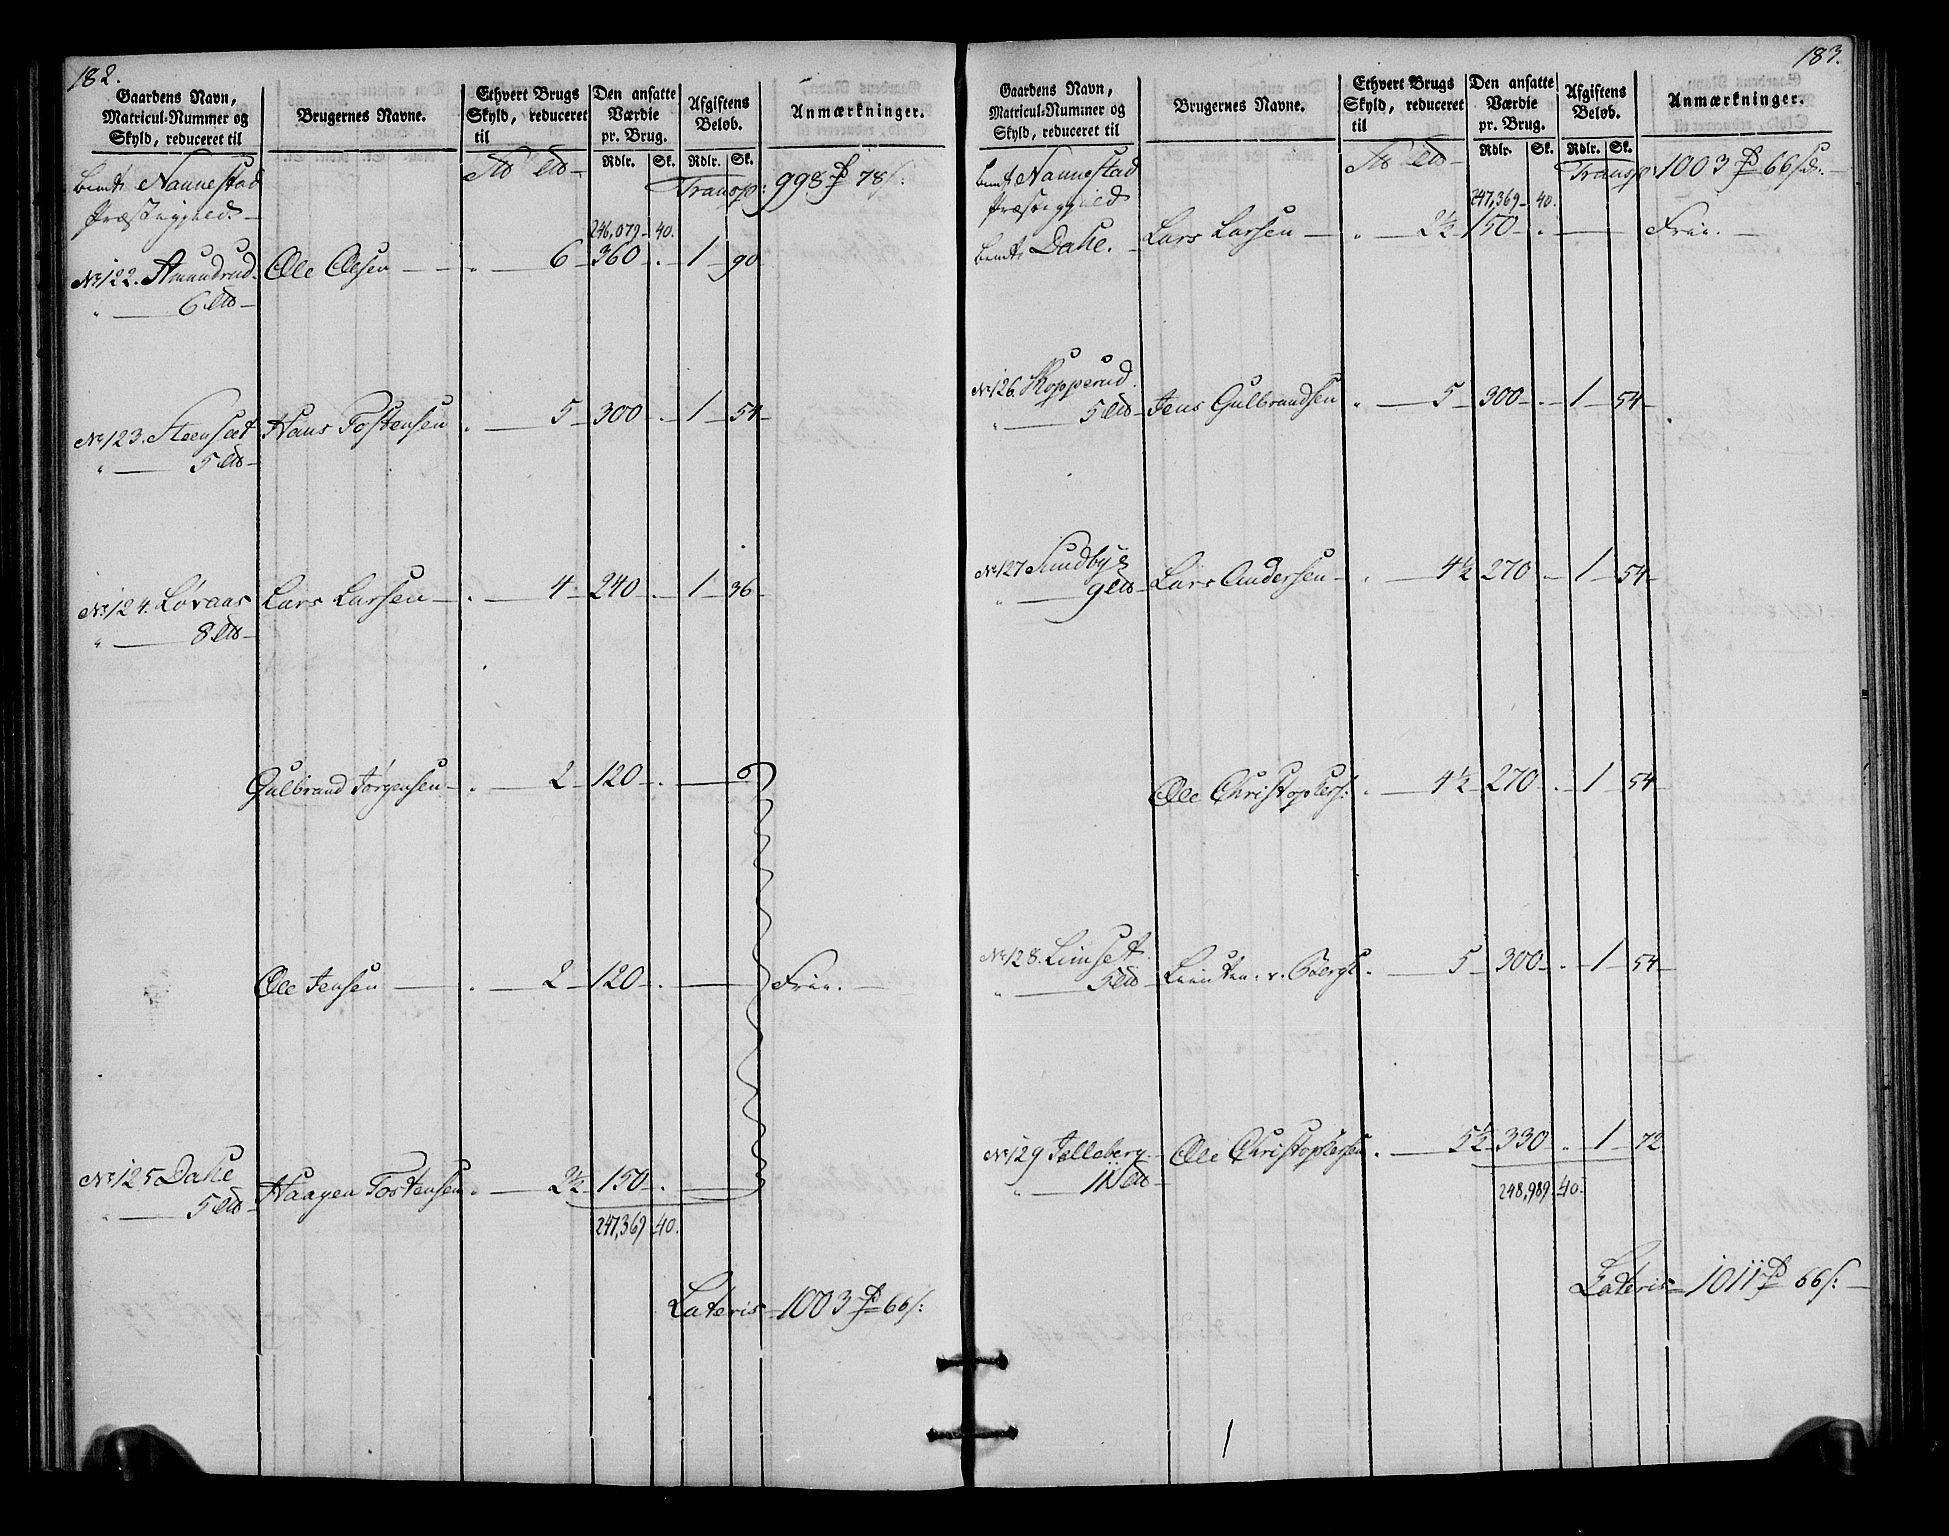 182.
Gaardens Navn, Matricul-Nummer og Skyld, reduceret til
Brugernes Navne.
Ethvert Brugs Skyld, reduceret til
Den ansatte Værdie pr. Brug.
Afgiftens Beløb.
Anmærkninger.
Rdlr. Sk. Rdlr. Sk.
Nannestad Transp: 998 78
Præstegjeld
246,079 40.
No 122. Amundrud Ole Olsen 6 360 . 1 90
6
No 123. Steensæt Hans Tostensen 5 300 . 1 54
5
No 124. Løvaas Lars Larsen 4 240 . 1 36
8
Gulbrand Jørgensen 2 120 .
Ole Jensen 2 120 . Frie.
No 125 Dahe Haagen Tostensen 2½ 150 .
5
247,369 40.
Lateris 1003 66
183.
Gaardens Navn, Matricul-Nummer og Skyld, reduceret til
Brugernes Navne.
Ethvert Brugs Skyld, reduceret til
Den ansatte Værdie pr. Brug.
Afgiftens Beløb.
Anmærkninger.
Rdlr. Sk. Rdlr. Sk.
Nannestad Transp: 1003 66
Præstegjeld
247,369 40.
Dahe. Lars Larsen 2½ 150 . Frie.
No 126 Kopperud Jens Gulbrandsen 5 300 . 1 54
5
No 127 Sundbye Lars Andersen 4½ 270 1 54
9
Ole Christophers: 4½ 270 . 1 54
No 128. Limset 5 300 . 1 54
5
No 129 Jelleberg Ole Christophersen 5½ 330 . 1 72
11
248,989 40.
Lateris 1011 66